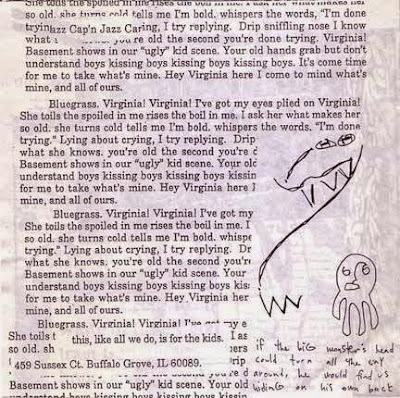 She toils the spoiled in me rises the boil in me. I ask her what makes her
so old. she turns cold tells me I'm bold. whispers the words, "I'm done
tryin
Jazz Cap'n Jazz Caring, I try replying. Drip sniffling nose I know
what you're old the second you're done trying. Virginia!
Basement shows in our "ugly" kid scene. Your old hands grab but don't
understand boys kissing boys kissing boys kissing boys. It's come time
for me to take what's mine. Hey Virginia here I come to mind what's
mine, and all of ours.
Bluegrass. Virginia! Virginia! I've got my eyes plied on Virginia!
She toils the spoiled in me rises the boil in me. I ask her what makes her
so old. she turns cold tells me I'm bold. whispers the words, "I'm done
trying." Lying about crying, I try replying. Drip
what she knows. you're old the second you're d
Basement shows in our "ugly" kid scene. Your old
understand boys kissing boys kissing boys kissin
for me to take what's mine. Hey Virginia here I
mine, and all of ours.
Bluegrass. Virginia! Virginia! I've got my
She toils the spoiled in me rises the boil in me. I
so old. she turns cold tells me I'm bold. whispe
trying." Lying about crying, I try replying. Drip
what she knows. you're old the second you're
Basement shows in our "ugly" kid scene. Your
understand boys kissing boys kissing boys kiss
for me to take what's mine. Hey Virginia her
mine, and all of ours.
Bluegrass. Virginia! Virginia! I've got my e
She toils t
this, like all we do, is for the kids.
I as
so old. sh
ers
459 Sussex Ct. Buffalo Grove, IL 60089.
Drip
you're old the second you're d
Basement shows in our "ugly" kid scene. Your old
understand boys kissing boys kissing boys kissin
if the big monster's head
could turn all the way
around, he would find us
hiding on his own back